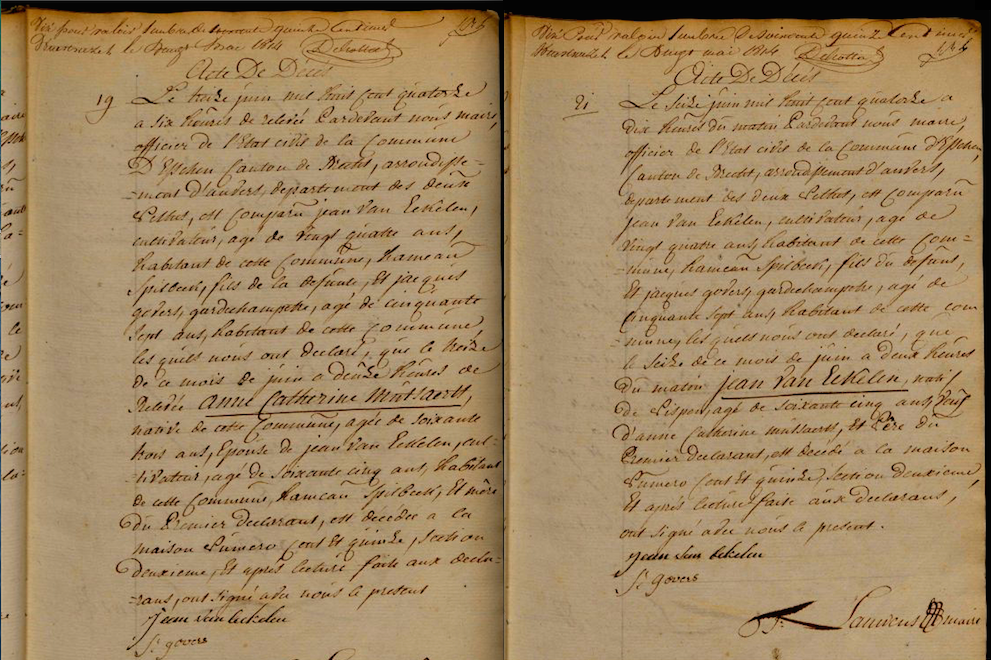 Vû pour valoir timbre de soixante quinze Centimes
le Vingt mai 1814
Acte De Décès
19
Le treize juin mil huit cent quatorze
a six heures de relevée Pardevant nous maire,
officier de l'Etat civil de la Commune
D'Esschen Canton de Brecht, arrondisse=
=ment d'anvers, departement des deux
Nethes, est Comparu jean Van Eekelen,
cultivateur, agé de Vingt quatre ans,
habitant de cette Commune, hameau
Spilbeek, fils de la defunte, Et jacques
govers, gardechampetre, agé de cinquante
sept ans, habitant de cette Commune,
les quels nous ont declaré, que le treize
de ce mois de juin a deux heures de
Relevée anne Catherine Mutsaerts,
native de cette Commune, agée de soixante
trois ans, Epouse de jean Van Eekelen, cul-
=tivateur, agé de Soixante cinq ans, habitant
de cette Commune, hameau Spilbeek, Et mère
du Premier declarant, est decedée a la
maison Numero Cent Et quinze, Section
deuxieme, Et après lecture faite aux decla-
=rans, ont signé avec nous le present
jean van eekelen
govers
Vû Pour valoir timbre de soixante quinze Centimes
le Vingt mai 1814
Acte De Décès
21
Le Seize juin mil huit Cent quatorze a
dix heures du matin Pardevant nous maire,
officier de l'Etat civil de la Commune d'Esschen,
Canton de Brecht, arrondissement d'anvers,
departement des deux Nethes, est Comparu
jean Van Eekelen, cultivateur, agé de
Vingt quatre ans, habitant de cette Com=
=mune, hameau Spilbeek, fils du defunt,
Et jacques govers, gardechampetre, agé de
Cinquante Sept ans, habitant de cette com
=mune, les quels nous ont declaré, que
le Seize de ce mois de juin a deux heures
Du matin jean Van Eekelen, natif
de agé de soixante cinq ans, veuf
d'anne Catherine mutsaerts, Et Père du
Premier declarant, est decedé a la maison
Numero Cent Et quinze, Section deuxieme,
Et après lecture faite aux declarans,
ont Signé avec nous le present.
jean van eekelen
govers
maire